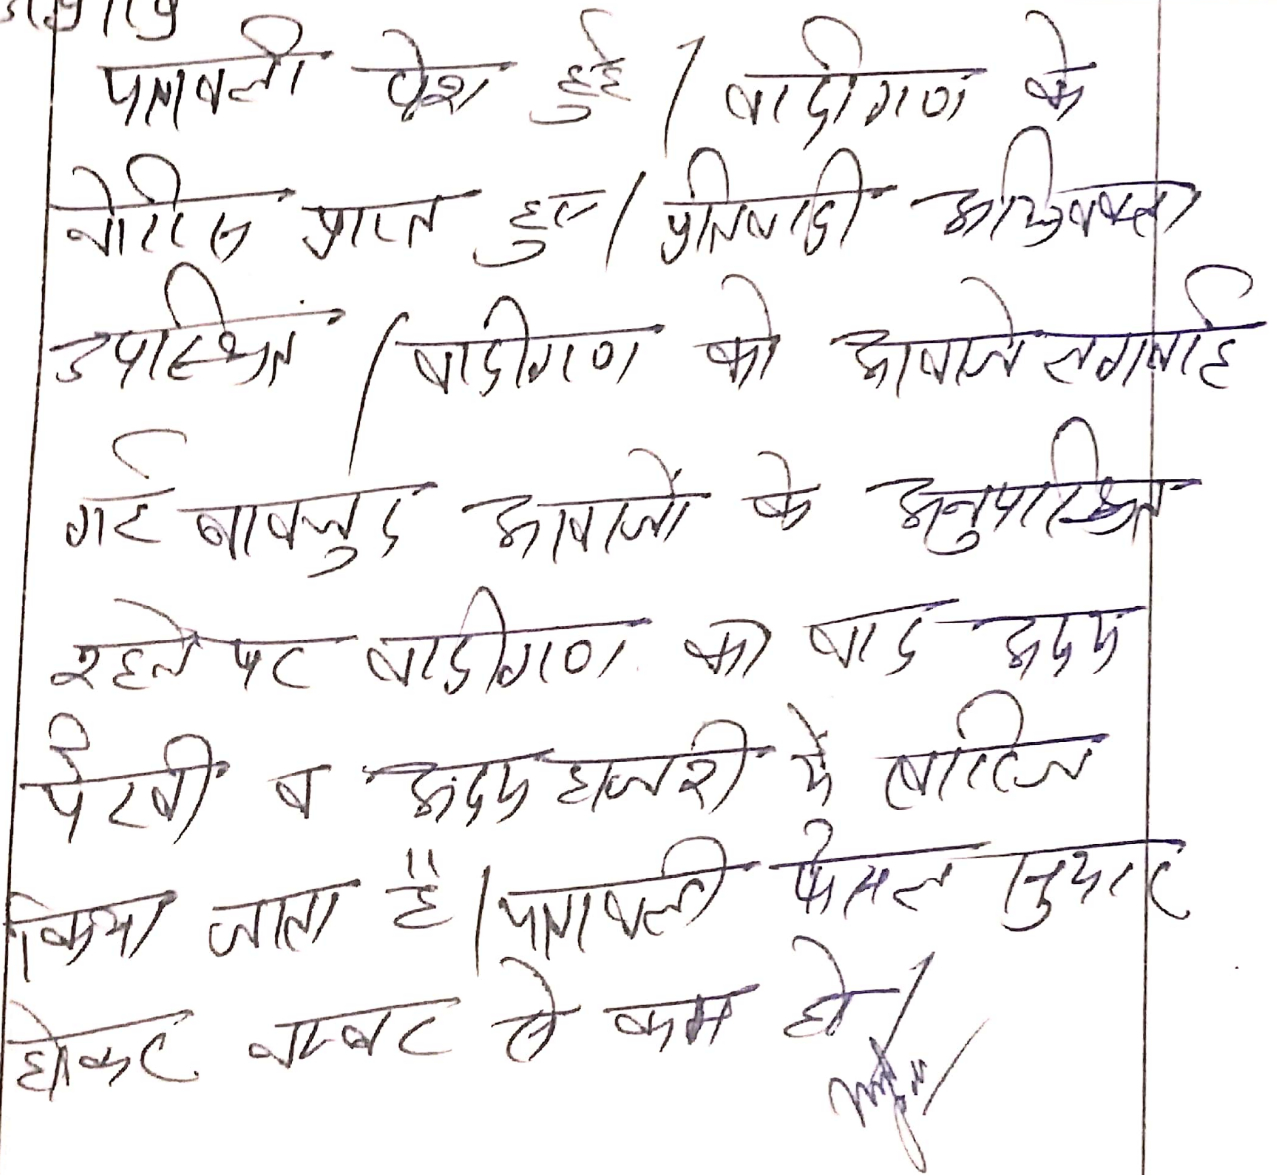 पत्रावली पेश हुई । वादीगण के
नोटिस प्राप्त हुए । प्रतिवादी अधिवक्ता
उपस्थित । वादीगण को आवाजे लगवाई
गई बावजुद आवाजों के अनुपस्थित
रहने पर वादीगण का वाद अदम
पैरवी व अदम हाजरी में खारिज
किया जाता है । पत्रावली फैसल सुमार
होकर नम्बर से कम हो ।